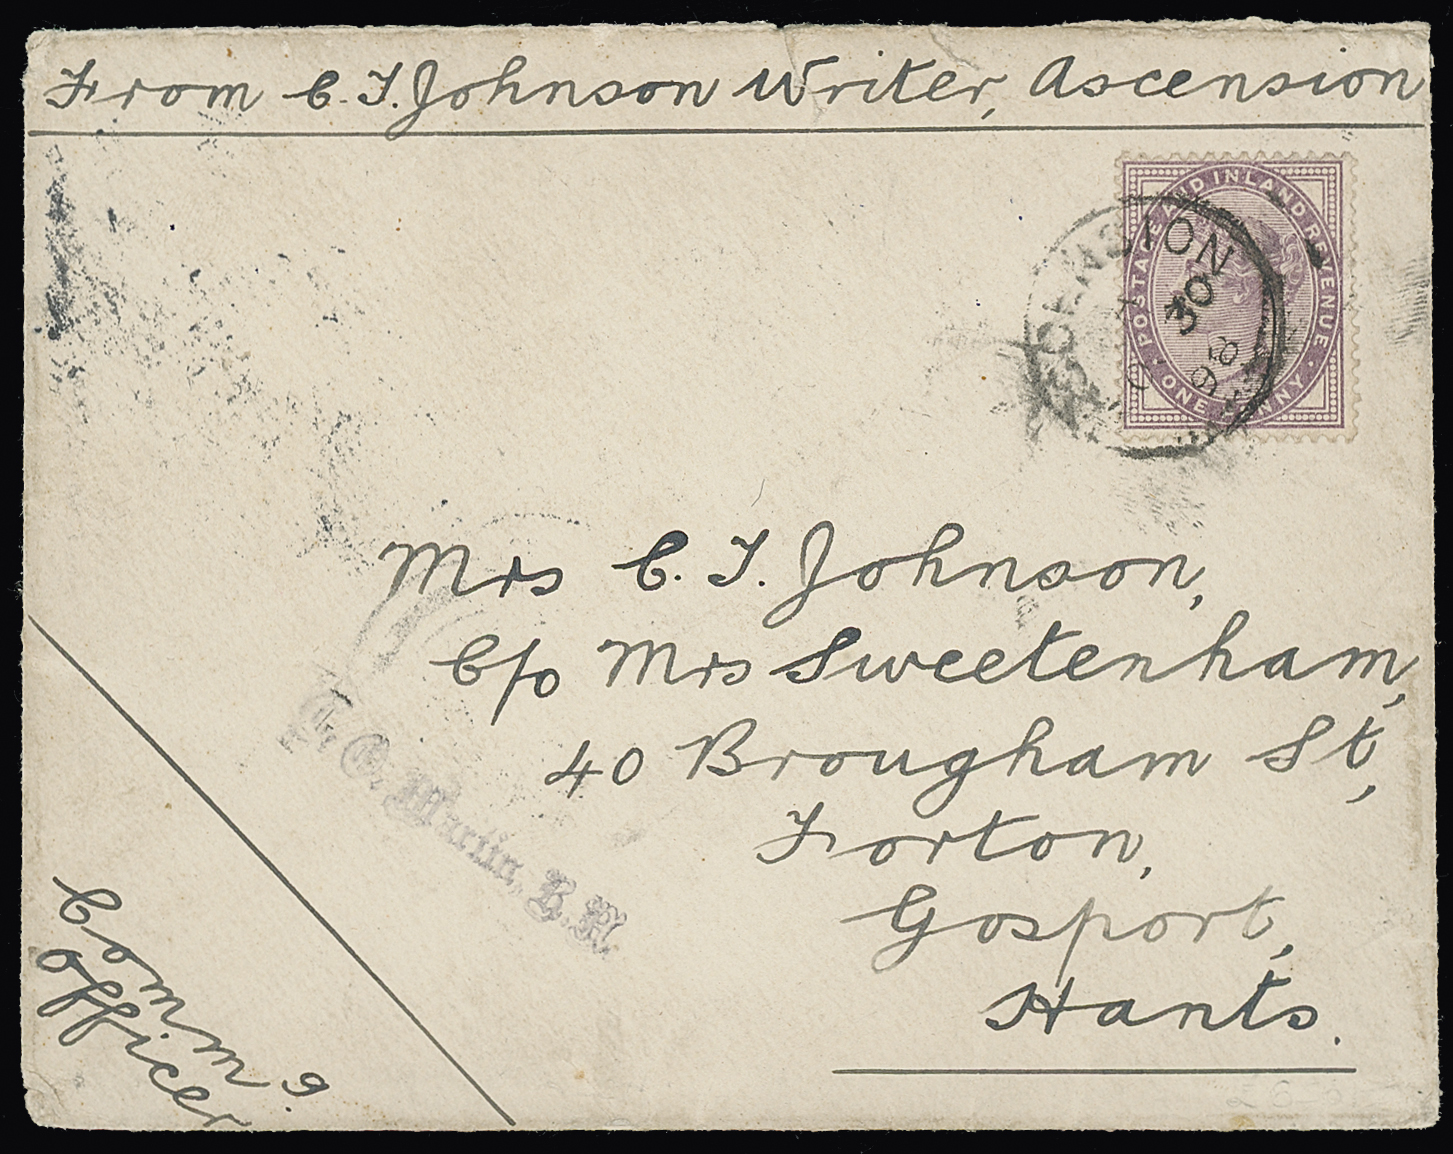 From C. T. Johnson Writer, Ascension
POSTAGE AND INLAND REVENUE · ONE PENNY ·
ASCENSION
30
98
Mrs C. T. Johnson,
C/o Mrs Sweetenham,
40 Brougham St,
Forton,
Gosport,
Hants.
Martin, R.N.
Comm g.
Officer